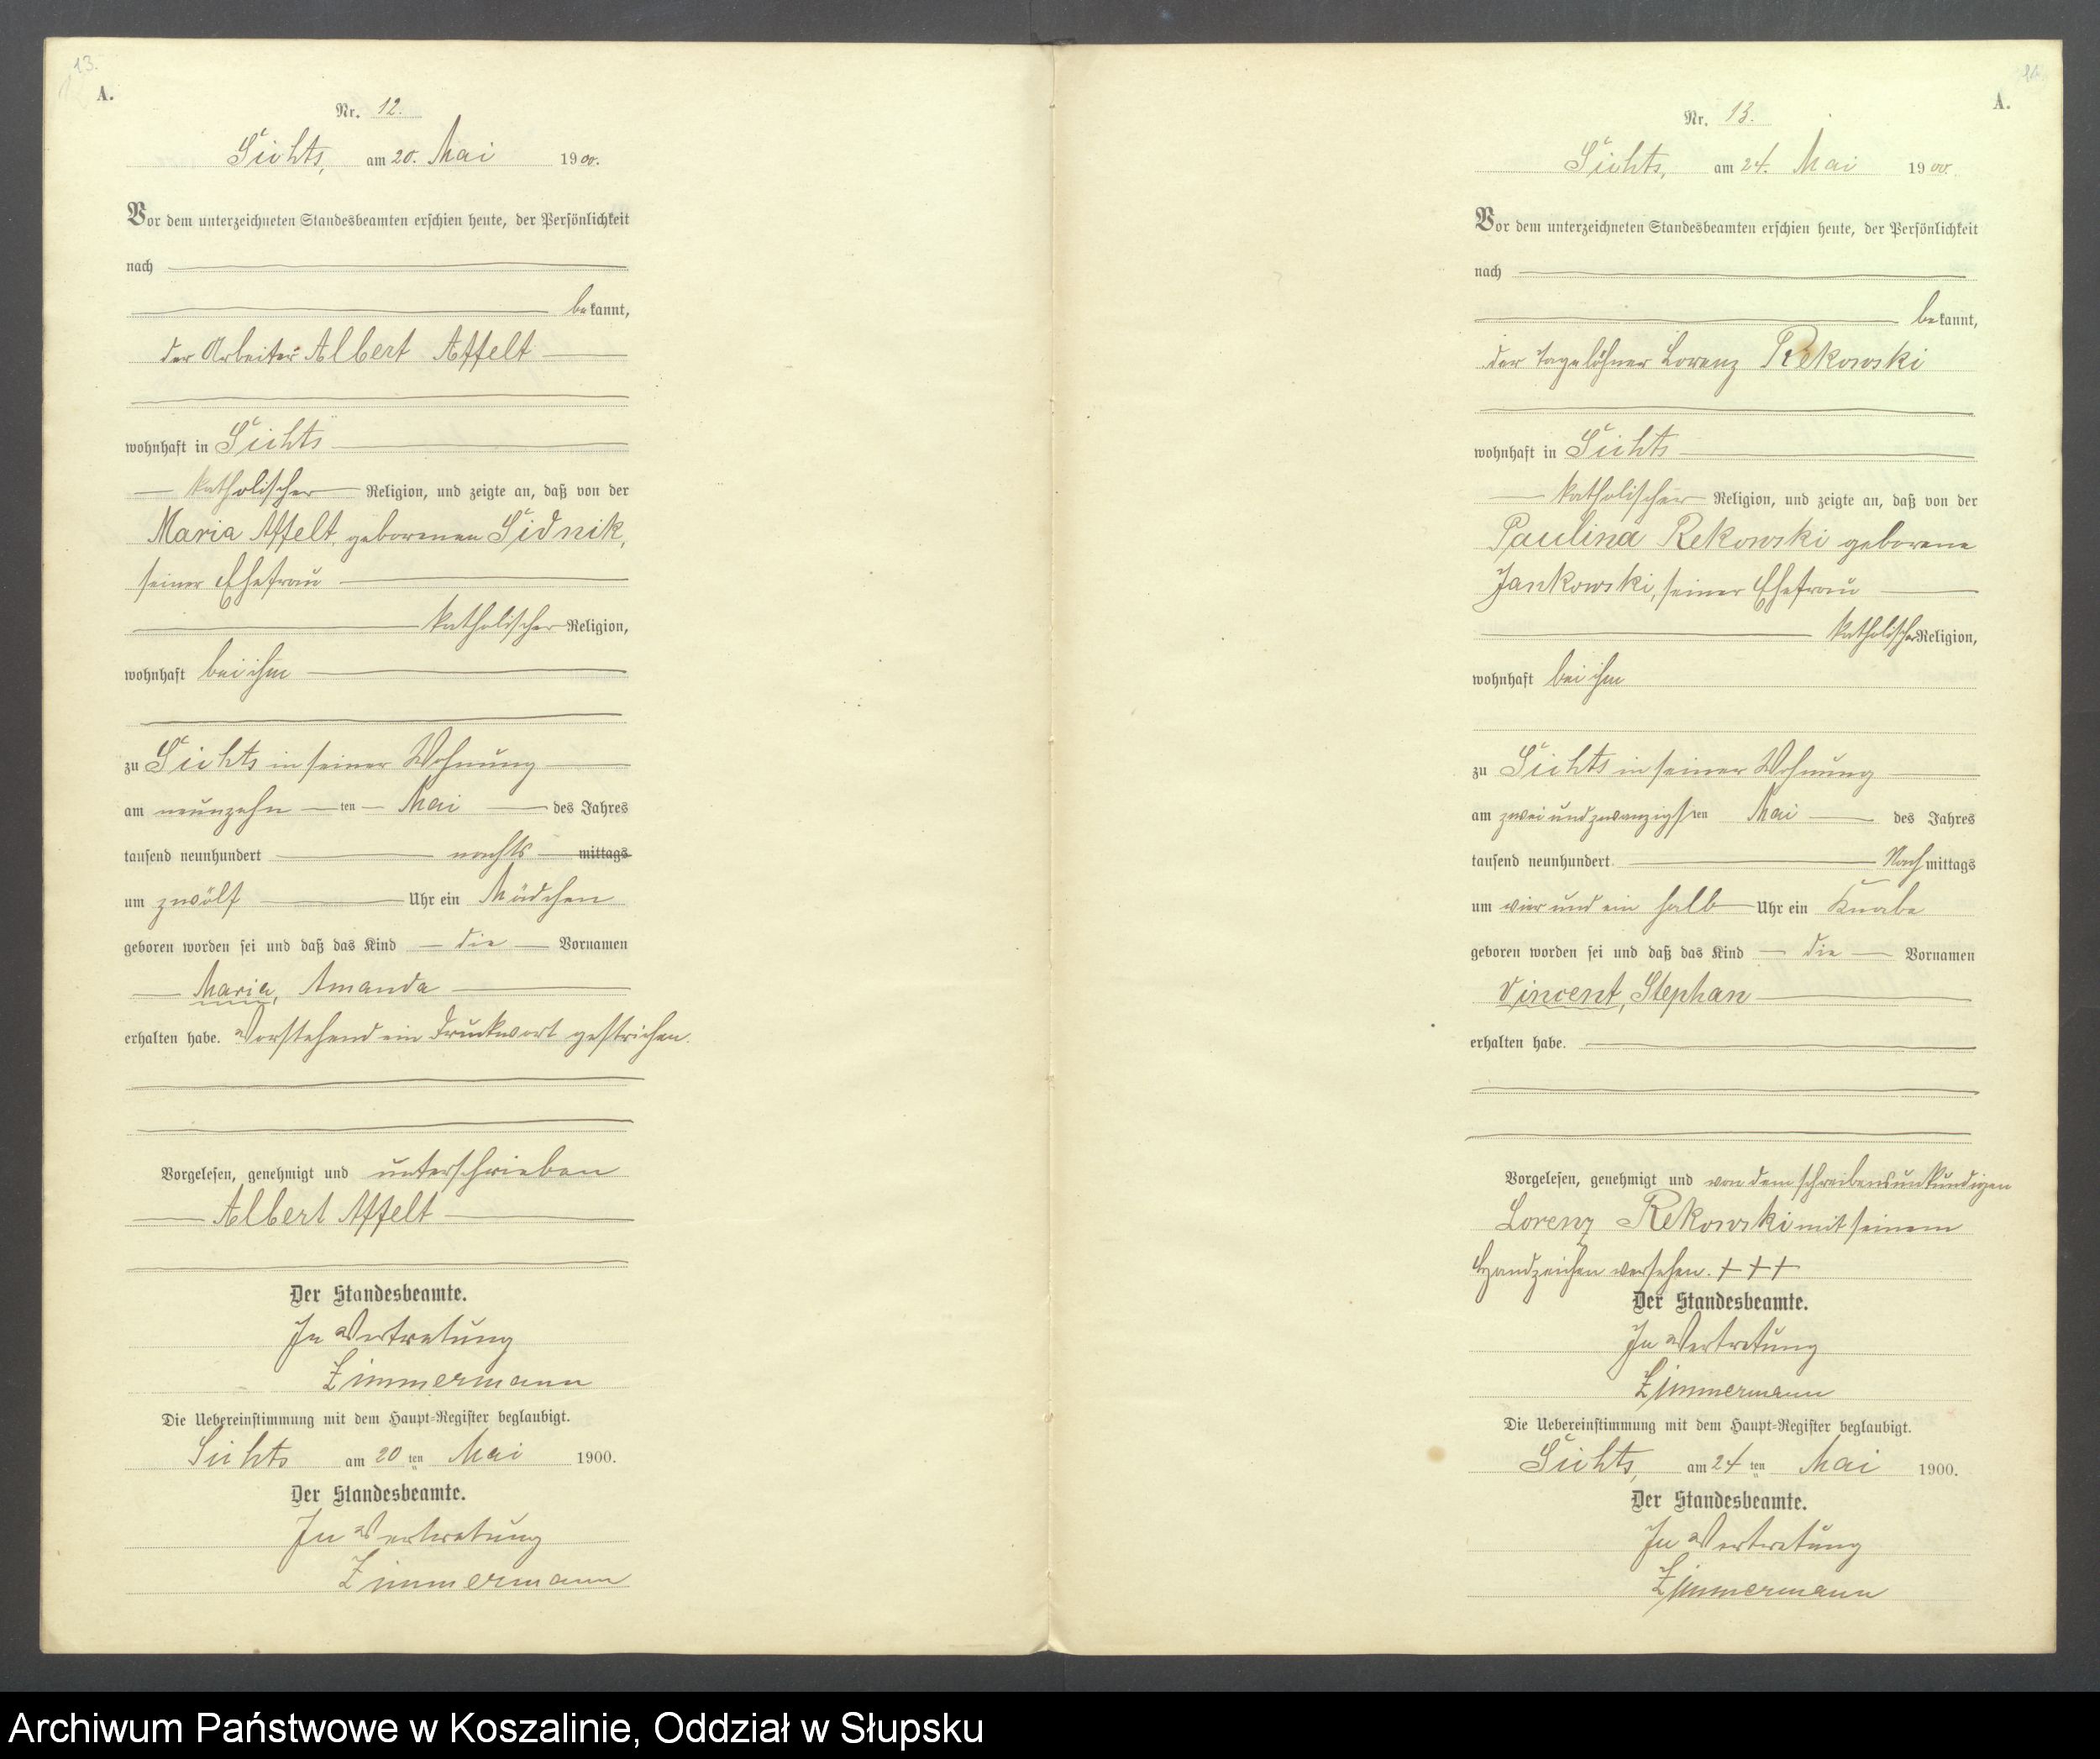 13.
A.
Nr. 12.
Sichts, am 20. Mai 1900.
Vor dem unterzeichneten Standesbeamten erschien heute, der Persönlichkeit
nach
bekannt,
der Arbeiter Albert Affelt
wohnhaft in Sichts
katholischer Religion, und zeigte an, daß von der
Maria Affelt, geborenen Sidnik,
seiner Ehefrau
katholischer Religion,
wohnhaft bei ihm
zu Sichts in seiner Wohnung
am neunzehn ten Mai des Jahres
tausend neunhundert nachts mittags
um zwölf Uhr ein Mädchen
geboren worden sei und daß das Kind die Vornamen
Maria, Amanda
erhalten habe. Vorstehend ein Druckwort gestrichen.
Vorgelesen, genehmigt und unterschrieben
Albert Affelt
Der Standesbeamte.
In Vertretung
Zimmermann
Die Uebereinstimmung mit dem Haupt-Register beglaubigt.
Sichts am 20 ten Mai 1900.
Der Standesbeamte.
In Vertretung
Zimmermann
A.
Nr. 13.
Sichts, am 24. Mai 1900.
Vor dem unterzeichneten Standesbeamten erschien heute, der Persönlichkeit
nach
bekannt,
der Tagelöhner Lorenz Rekowski
wohnhaft in Sichts
katholischer Religion, und zeigte an, daß von der
Paulina Rekowski geborene
Jankowski, seiner Ehefrau
katholischer Religion,
wohnhaft bei ihm
zu Sichts in seiner Wohnung
am zwei und zwanzigsten Mai des Jahres
tausend neunhundert Nachmittags
um vier und ein halb Uhr ein Knabe
geboren worden sei und daß das Kind die Vornamen
Vincent, Stephan
erhalten habe.
Vorgelesen, genehmigt und von dem schreibensunkundigen
Lorenz Rekowski mit seinem
Handzeichen versehen. +++
Der Standesbeamte.
In Vertretung
Zimmermann
Die Uebereinstimmung mit dem Haupt-Register beglaubigt.
Sichts, am 24 ten Mai 1900.
Der Standesbeamte.
In Vertretung
Zimmermann
Archiwum Państwowe w Koszalinie, Oddział w Słupsku